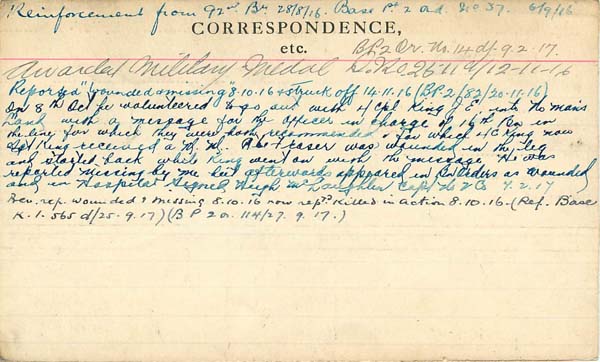 Reinforcement from 92nd Bn 28/8/16. Base Pt 2 ord. No 37. 6/9/16
CORRESPONDENCE,
etc.
B.P.2 Or. No. 14 d/ 9.2.17.
Awarded Military Medal 12-11-16
Reported "wounded & missing" 8.10.16 & struck off 14.11.16 (BP.2/82/20-11-16)
On 8th Oct he volunteered to go out with L/Cpl King J E into no mans
land with a message for the officer in charge of 16th Bn in
the line for which they were both recommended & for which L/C King now
Sgt King received a M.M. Pte Fraser was wounded in the leg
and started back while King went on with the message. He was
reported missing by me but afterwards appeared in Bn Orders as wounded
and in Hospital Signed Hugh McLaughlin Capt 9.2.17
Prev. rep. wounded & missing 8.10.16 now rep'd Killed in action 8.10.16. (Ref. Base
K.1.565 d/25.9.17) (B P 2 o. 114/27.9.17.)